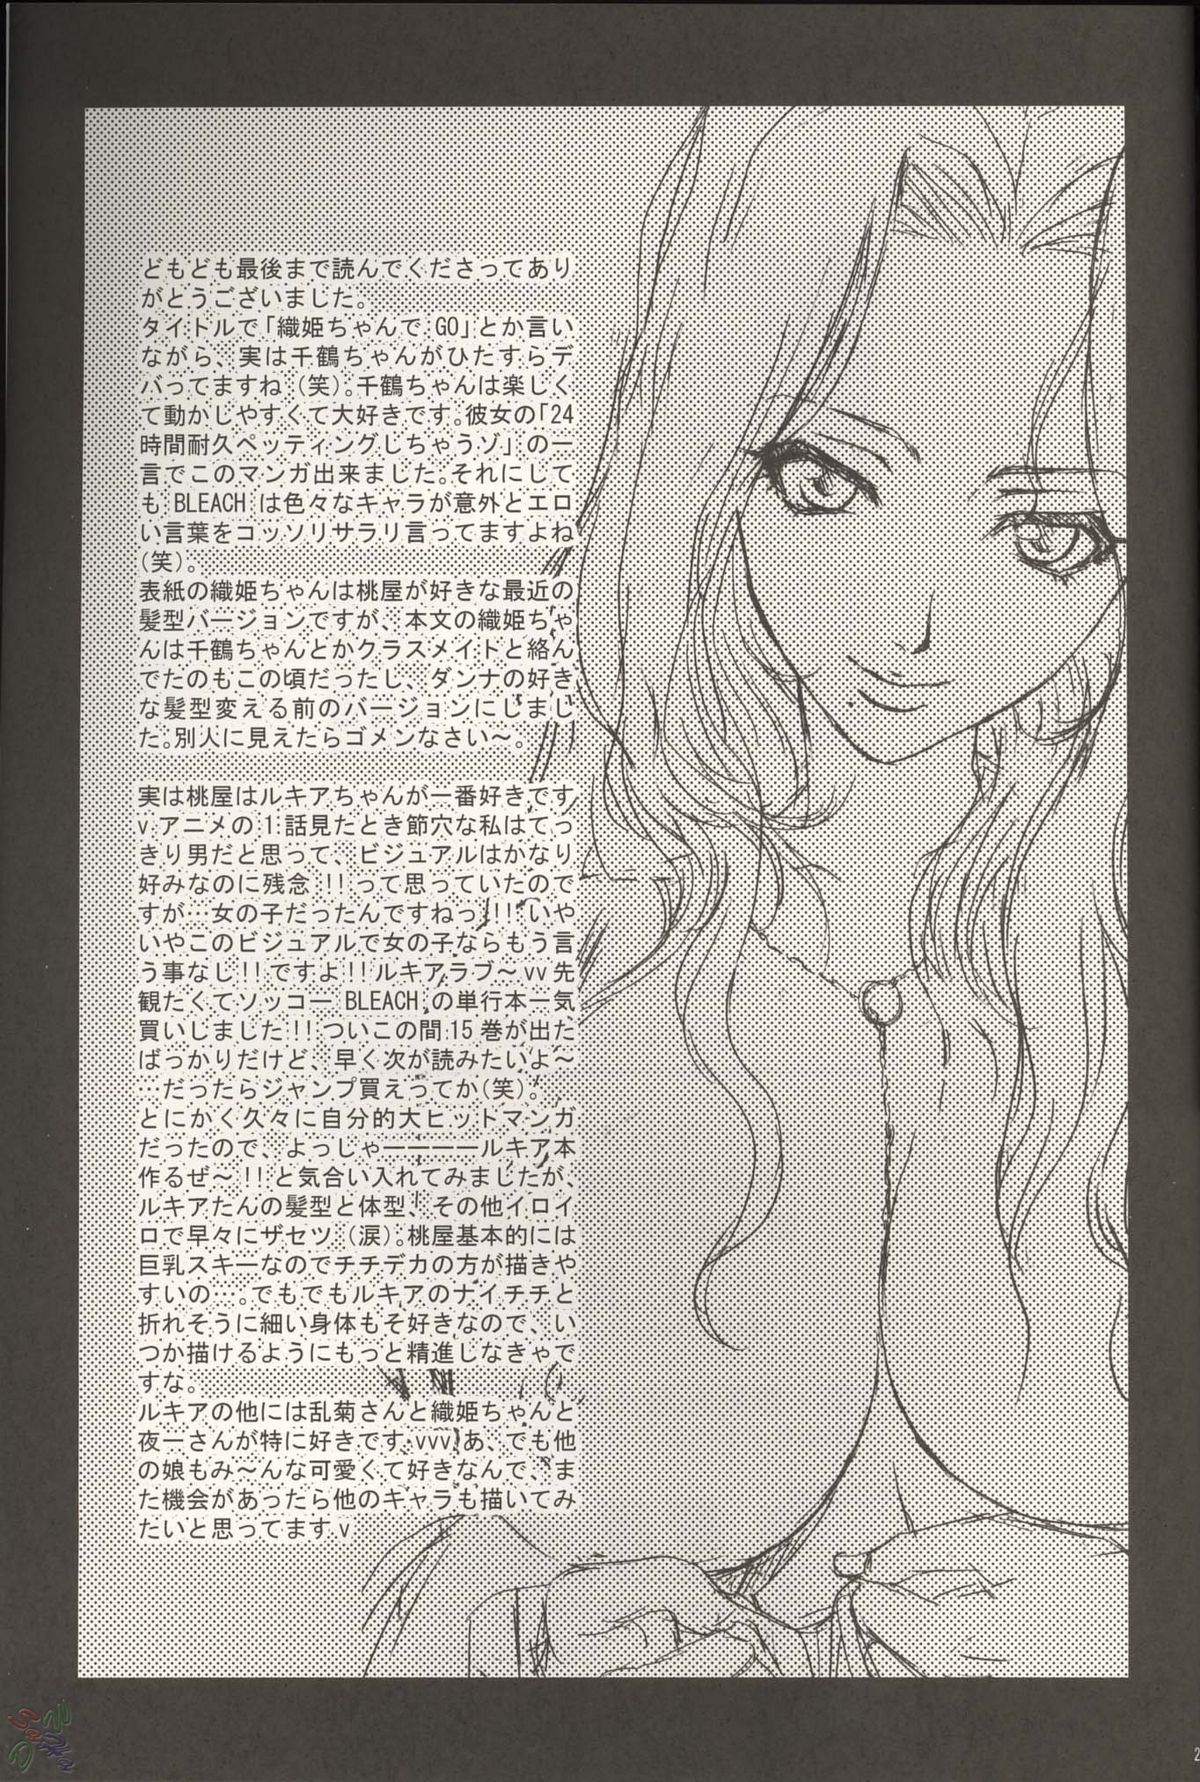 どもども最後まで読んでくださってあり
がとうございました。
タイトルで「織姫ちゃんで GO」とか言い
ながら、実は千鶴ちゃんがひたすらデ
バってますね（笑）。千鶴ちゃんは楽しく
て動かしやすくて大好きです。彼女の「24
時間耐久ペッティングしちゃうゾ」の一
言でこのマンガ出来ました。それにして
も BLEACH は色々なキャラが意外とエロ
い言葉をコッソリサラリ言ってますよね
（笑）。
表紙の織姫ちゃんは桃屋が好きな最近の
髪型バージョンですが、本文の織姫ちゃ
んは千鶴ちゃんとかクラスメイトと絡ん
でたのもこの頃だったし、ダンナの好き
な髪型変える前のバージョンにしまし
た。別人に見えたらゴメンなさい～。
実は桃屋はルキアちゃんが一番好きです
v アニメの 1 話見たとき節穴な私はてっ
きり男だと思って、ビジュアルはかなり
好みなのに残念!!って思っていたので
すが…女の子だったんですねっ!!!いや
いやこのビジュアルで女の子ならもう言
う事なし!!ですよ!!ルキアラブ～vv先
観たくてソッコー BLEACH の単行本一気
買いしました!!ついこの間 15 巻が出た
ばっかりだけど、早く次が読みたいよ～
…だったらジャンプ買えってか（笑）。
とにかく久々に自分的大ヒットマンガ
だったので、よっしゃ――――ルキア本
作るぜ～!!と気合い入れてみましたが、
ルキアたんの髪型と体型、その他イロイ
ロで早々にザセツ（涙）。桃屋基本的には
巨乳スキーなのでチチデカの方が描きや
すいの…。でもでもルキアのナイチチと
折れそうに細い身体もそ好きなので、い
つか描けるようにもっと精進しなきゃで
すな。
ルキアの他には乱菊さんと織姫ちゃんと
夜一さんが特に好きです vvv あ、でも他
の娘もみ～んな可愛くて好きなんで、ま
た機会があったら他のキャラも描いてみ
たいと思ってます v
2